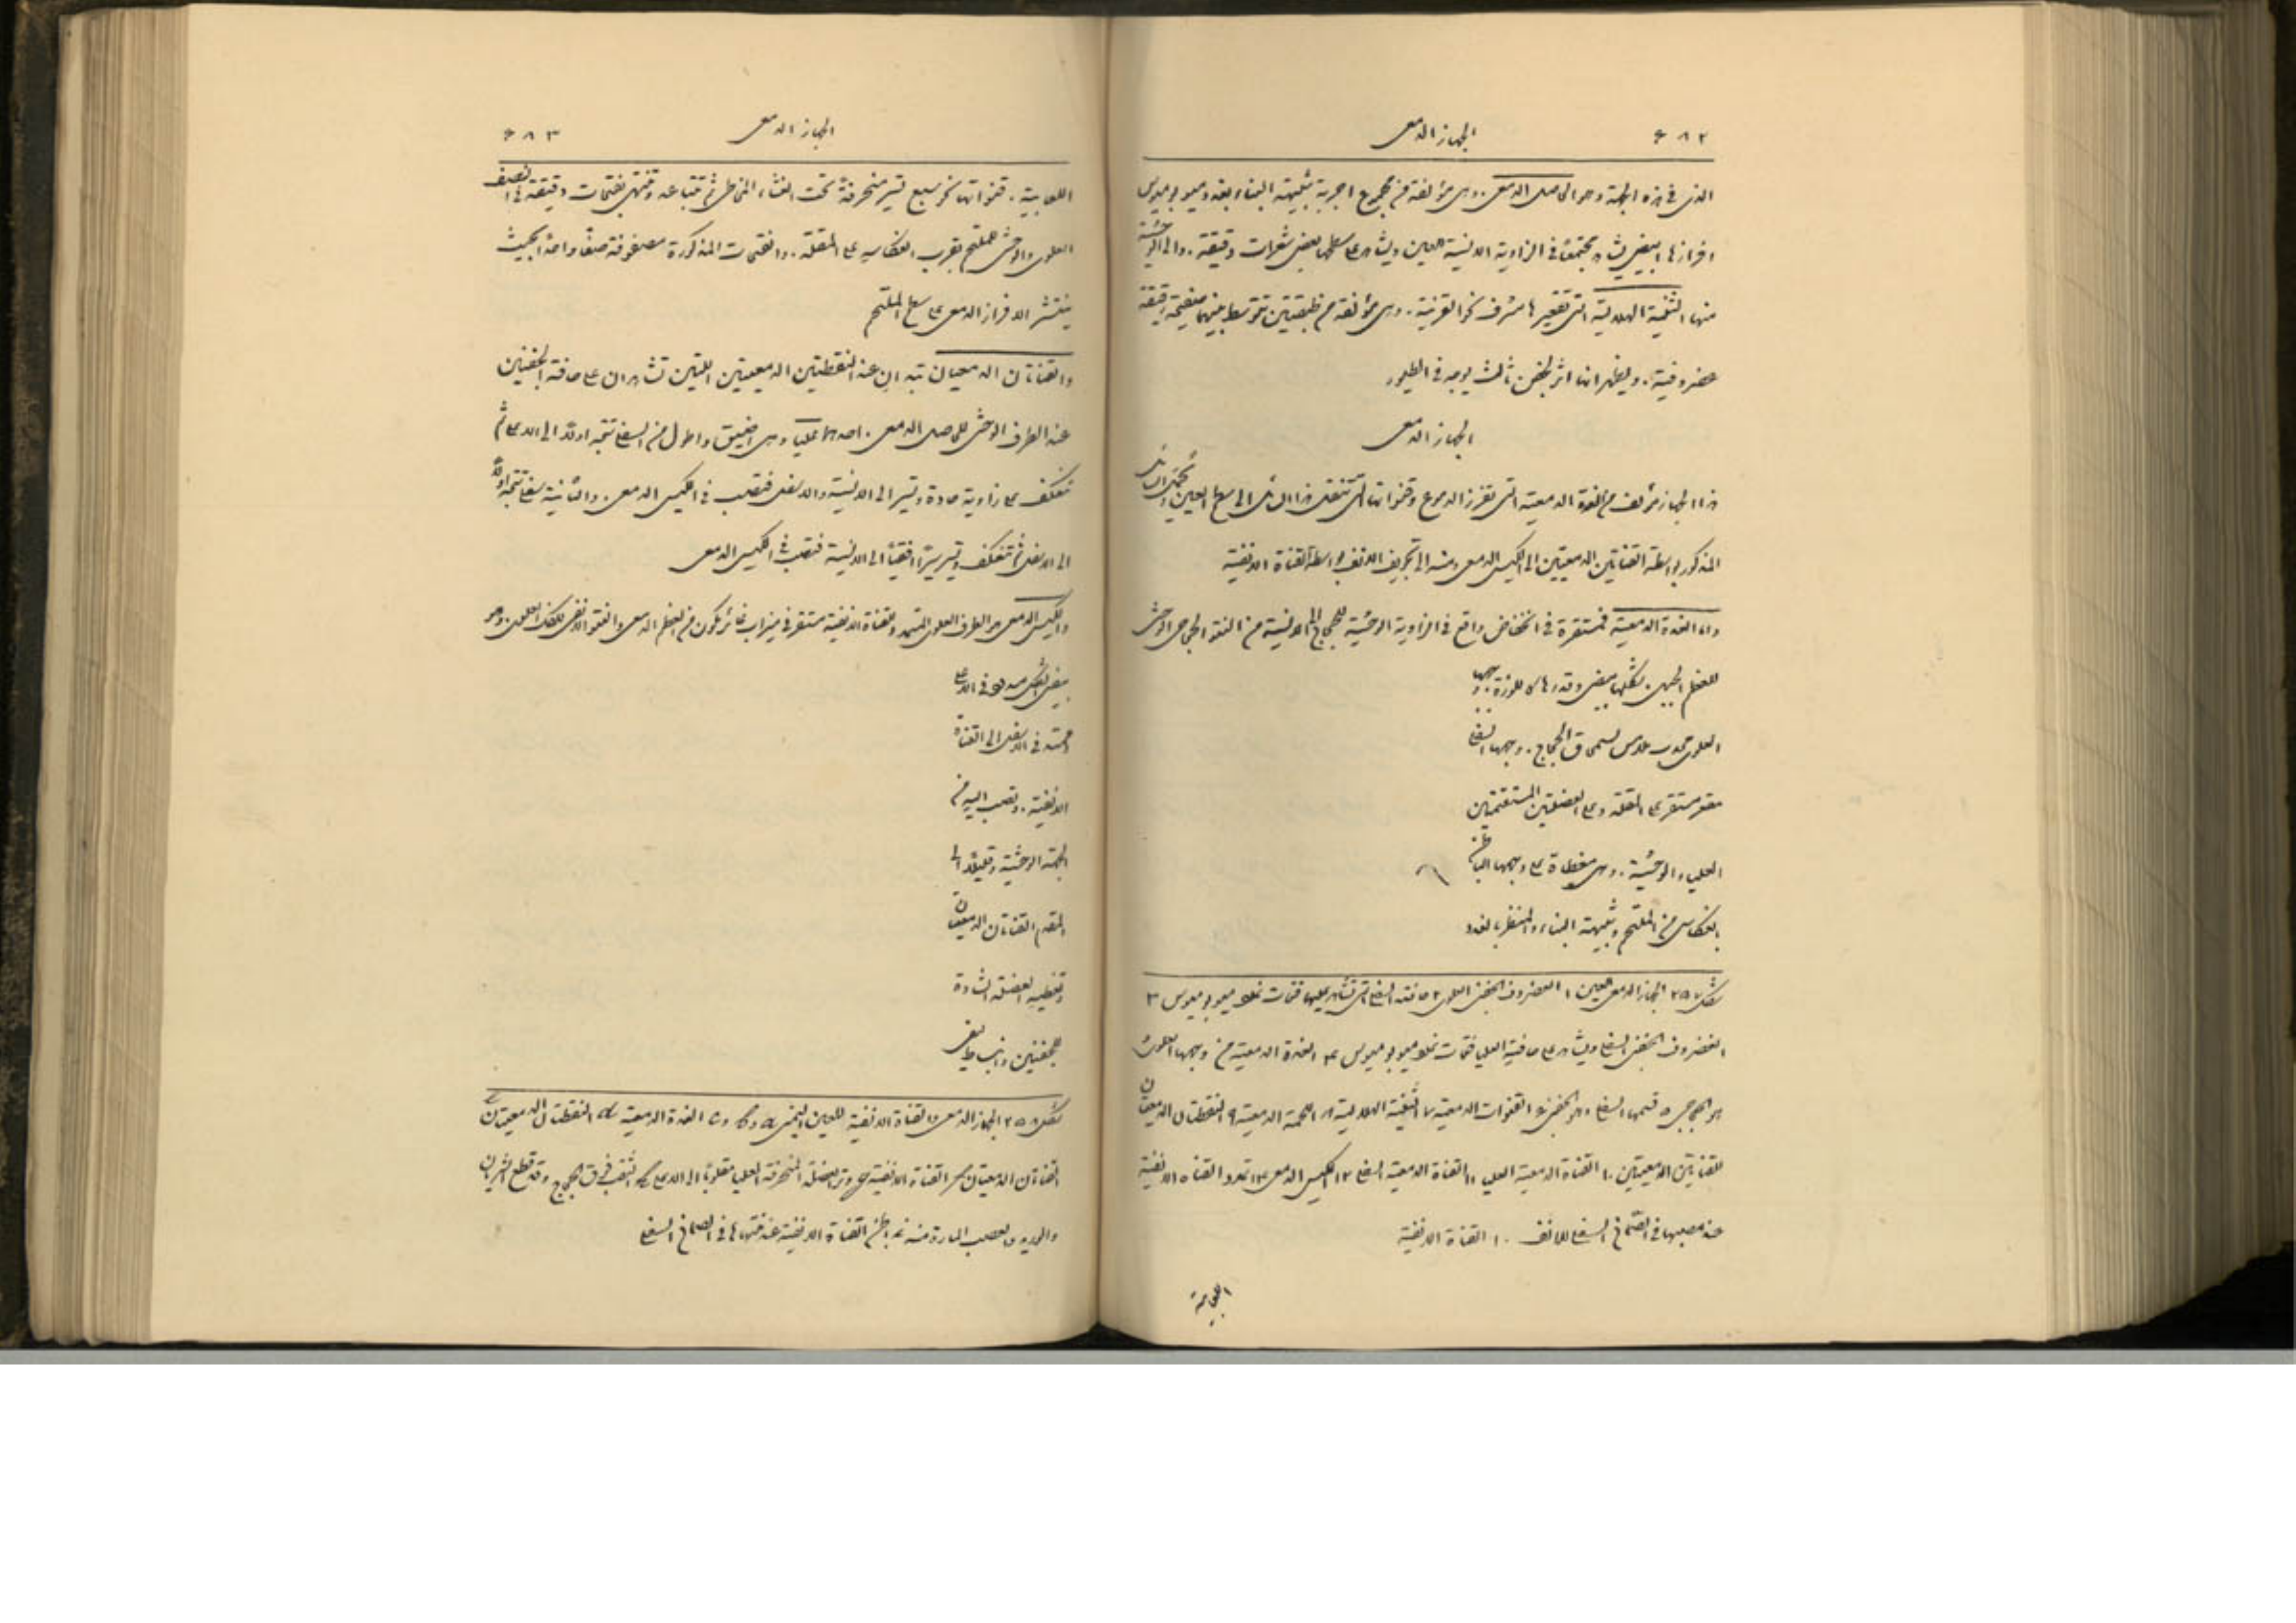 ٦٨٢ الجهاز الدمعي
الذي في هذه الجهة وحوالي حامل الدمعي. وهي مؤلفة من مجموع اجربة شبيهة البناء بغدد ميبوميوس
افرازها ابيض يشاهد مجتمعًا في الزاوية الانسية للعين ويشاهد على سطحها بعض شعرات دقيقة. والى الوحشية
منها الثنية الهلالية التي تقعيرها مشرف نحو القرنية. وهي مؤلفة من طبقتين تتوسط بينهما صفيحة رقيقة
غضروفية. ويظهر انها اثر لجفن ثالث يوجد في الطيور
الجهاز الدمعي
هذا الجهاز مؤلف من الغدة الدمعية التي تفرز الدموع وقنواتها التي تنقل هذا السائل الى سطح العين
المذكور بواسطة القناتين الدمعيتين الى الكيس الدمعي ومنه الى تجويف الانف بواسطة القناة الانفية
واما الغدة الدمعية فمستقرة في انخفاض واقع في الزاوية الوحشية للحجاج الى الانسية من النتو الحجاجي الوحشي
للعظم الجبهي. شكلها بيضي وقدرها كاللوزة. وجهها
العلوي محدب ملامس لسمحاق الحجاج. ووجهها السفلي
مقعر مستقر على المقلة وعلى العضلتين المستقيمتين
العليا والوحشية. وهي مغطاة على وجهها الباطن
بانعكاس من الملتحم وشبيهة البناء والمنظر بالغدد
شكل ٢٥٧ الجهاز الدمعي للعين ١ الغضروف الجفني العلوي ٢ حافته السفلى التي تشاهد عليها فتحات غدد ميبوميوس ٣
الغضروف الجفني السفلي ويشاهد على حافته العليا فتحات غدد ميبوميوس ٤ الغدة الدمعية من وجهها العلوي
هو الحجاجي ٥ قسمها السفلي وهو الجفني ٦ القنوات الدمعية ٧ الثنية الهلالية ٨ اللحمة الدمعية ٩ النقطتان الدمعيتان
للقناتين الدمعيتين ١٠ القناة الدمعية العليا ١١ القناة الدمعية السفلى ١٢ الكيس الدمعي ١٣ تمدد القناة الانفية
عند مصبها في الصماخ السفلي للانف ١٠ القناة الانفية
اللعابية
٦٨٣ الجهاز الدمعي
اللعابية. قنواتها نحو سبع تسير منحرفةً تحت الغشاء المخاطي ثم تتباعد وتنتهي بفتحات دقيقة في النصف
العلوي والوحشي للملتحم بقرب انعكاسه على المقلة. والفتحات المذكورة مصفوفة صفًا واحدًا بحيث
ينتشر الافراز الدمعي على سطح الملتحم
والقناتان الدمعيتان تبتدان عند النقطتين الدمعيتين اللتين تشاهدان على حافة الجفنين
عند الطرف الوحشي للحامل الدمعي. احداهما عليا وهي اضيق واطول من السفلى تتجه اولًا الى الاعلى ثم
تنعكف على زاوية حادة وتسير الى الانسية والاسفل فتصب في الكيس الدمعي. والثانية سفلى تتجه اولًا
الى الاسفل ثم تنعكف وتسير سيرًا افقيًا الى الانسية فتصب في الكيس الدمعي
والكيس الدمعي هو الطرف العلوي المتمدد للقناة الانفية مستقر في ميزاب غائر مكون من العظم الدمعي والنتو الانفي للفك العلوي. وهو
بيضي الشكل مسدود في الاعلى
ممتد في الاسفل الى القناة
الانفية. وتصب اليه من
الجهة الوحشية وقليلًا الى
المقدم القناتان الدمعيتان
وتغطيه العضلة الشادة
للجفنين وانبساط ليفي
شكل ٢٥٨ الجهاز الدمعي والقناة الانفية للعين اليمنى الغدة الدمعية النقطتان الدمعيتان
القناتان الدمعيتان القناة الانفية وتر العضلة المنحرفة العليا مقلوبًا الى الاعلى الثقب فوق الحجاج وقد قطع الشريان
والوريد والعصب المارة منه باطن القناة الانفية عند فتحتها في الصماخ السفلي